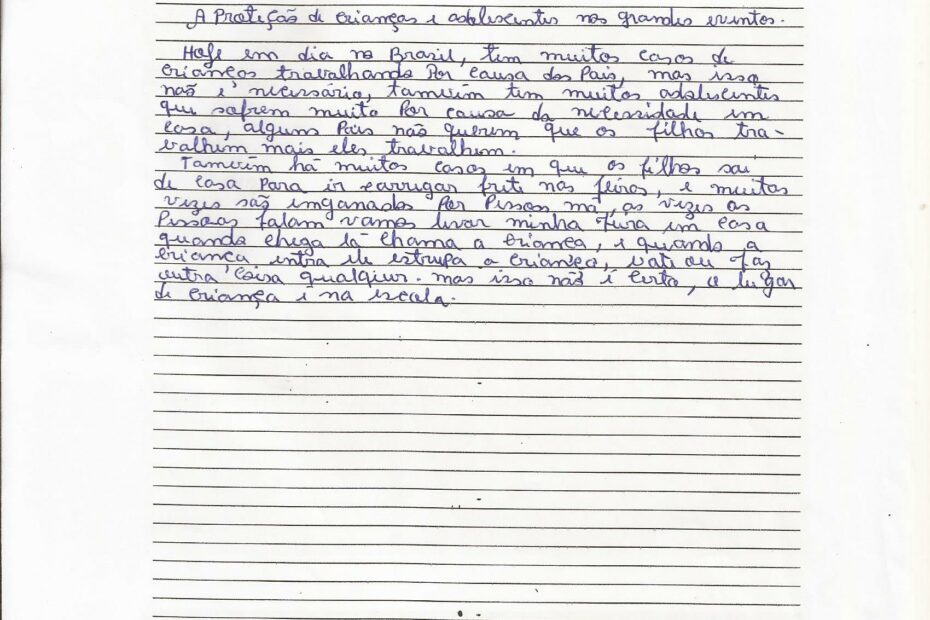 A Proteção de crianças e adolescentes nos grandes eventos.
Hoje em dia no Brasil, tem muitos casos de
crianços trabalhando Por causa dos Pais, mas isso
não é necessário, também tem muitos adolescentes
que sofrem muito Por causa da necessidade em
casa, alguns Pais não querem que os filhos tra-
balhem mais eles trabalhem.
Também há muitos casos em que os filhos sai
de casa Para ir carrugar frete nas feiras, e muitas
vezes são enganados Por Pessoas má, as vezes as
Pessoas falam vamos levar minha feira em casa
quando chega lá chama a criança, e quando a
criança entra ele estrupa a criança, bate ou faz
outra coisa qualquer. mas isso não é certo, o lugar
de criança é na escola.